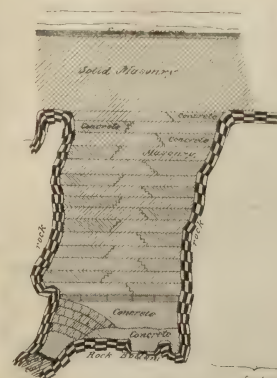 Solid Masonry
Concrete
Concrete
Concrete
Masonry
rock
rock
Concrete
Concrete
Rock Bottom